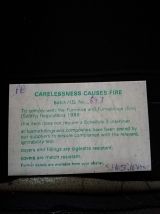 CARELESSNESS CAUSES FIRE
Batch / I.D. No.
To comply with the Furniture and Furnishings (Fire)
(Safety) Regulations 1988
this item does not require a Schedule 3 interliner
all foams/fillings and composites have been tested by
our suppliers to ensure compliance with the relevant
ignitability test.
covers and fillings are cigarette resistant.
covers are match resistant.
Further details are available from your retailer.